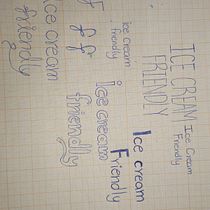 ice cream
friendly
F f f
ice cream
friendly
ice cream
friendly
ICE CREAM
FRIENDLY
Ice Cream
Friendly
Ice cream
Friendly